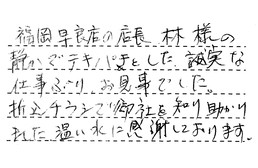 福岡早良店の店長 林 様の
静かでテキパキとした 誠実な
仕事ぶり お見事でした。
折込チラシで御社を知り助かり
ました 温い水に感謝しております。